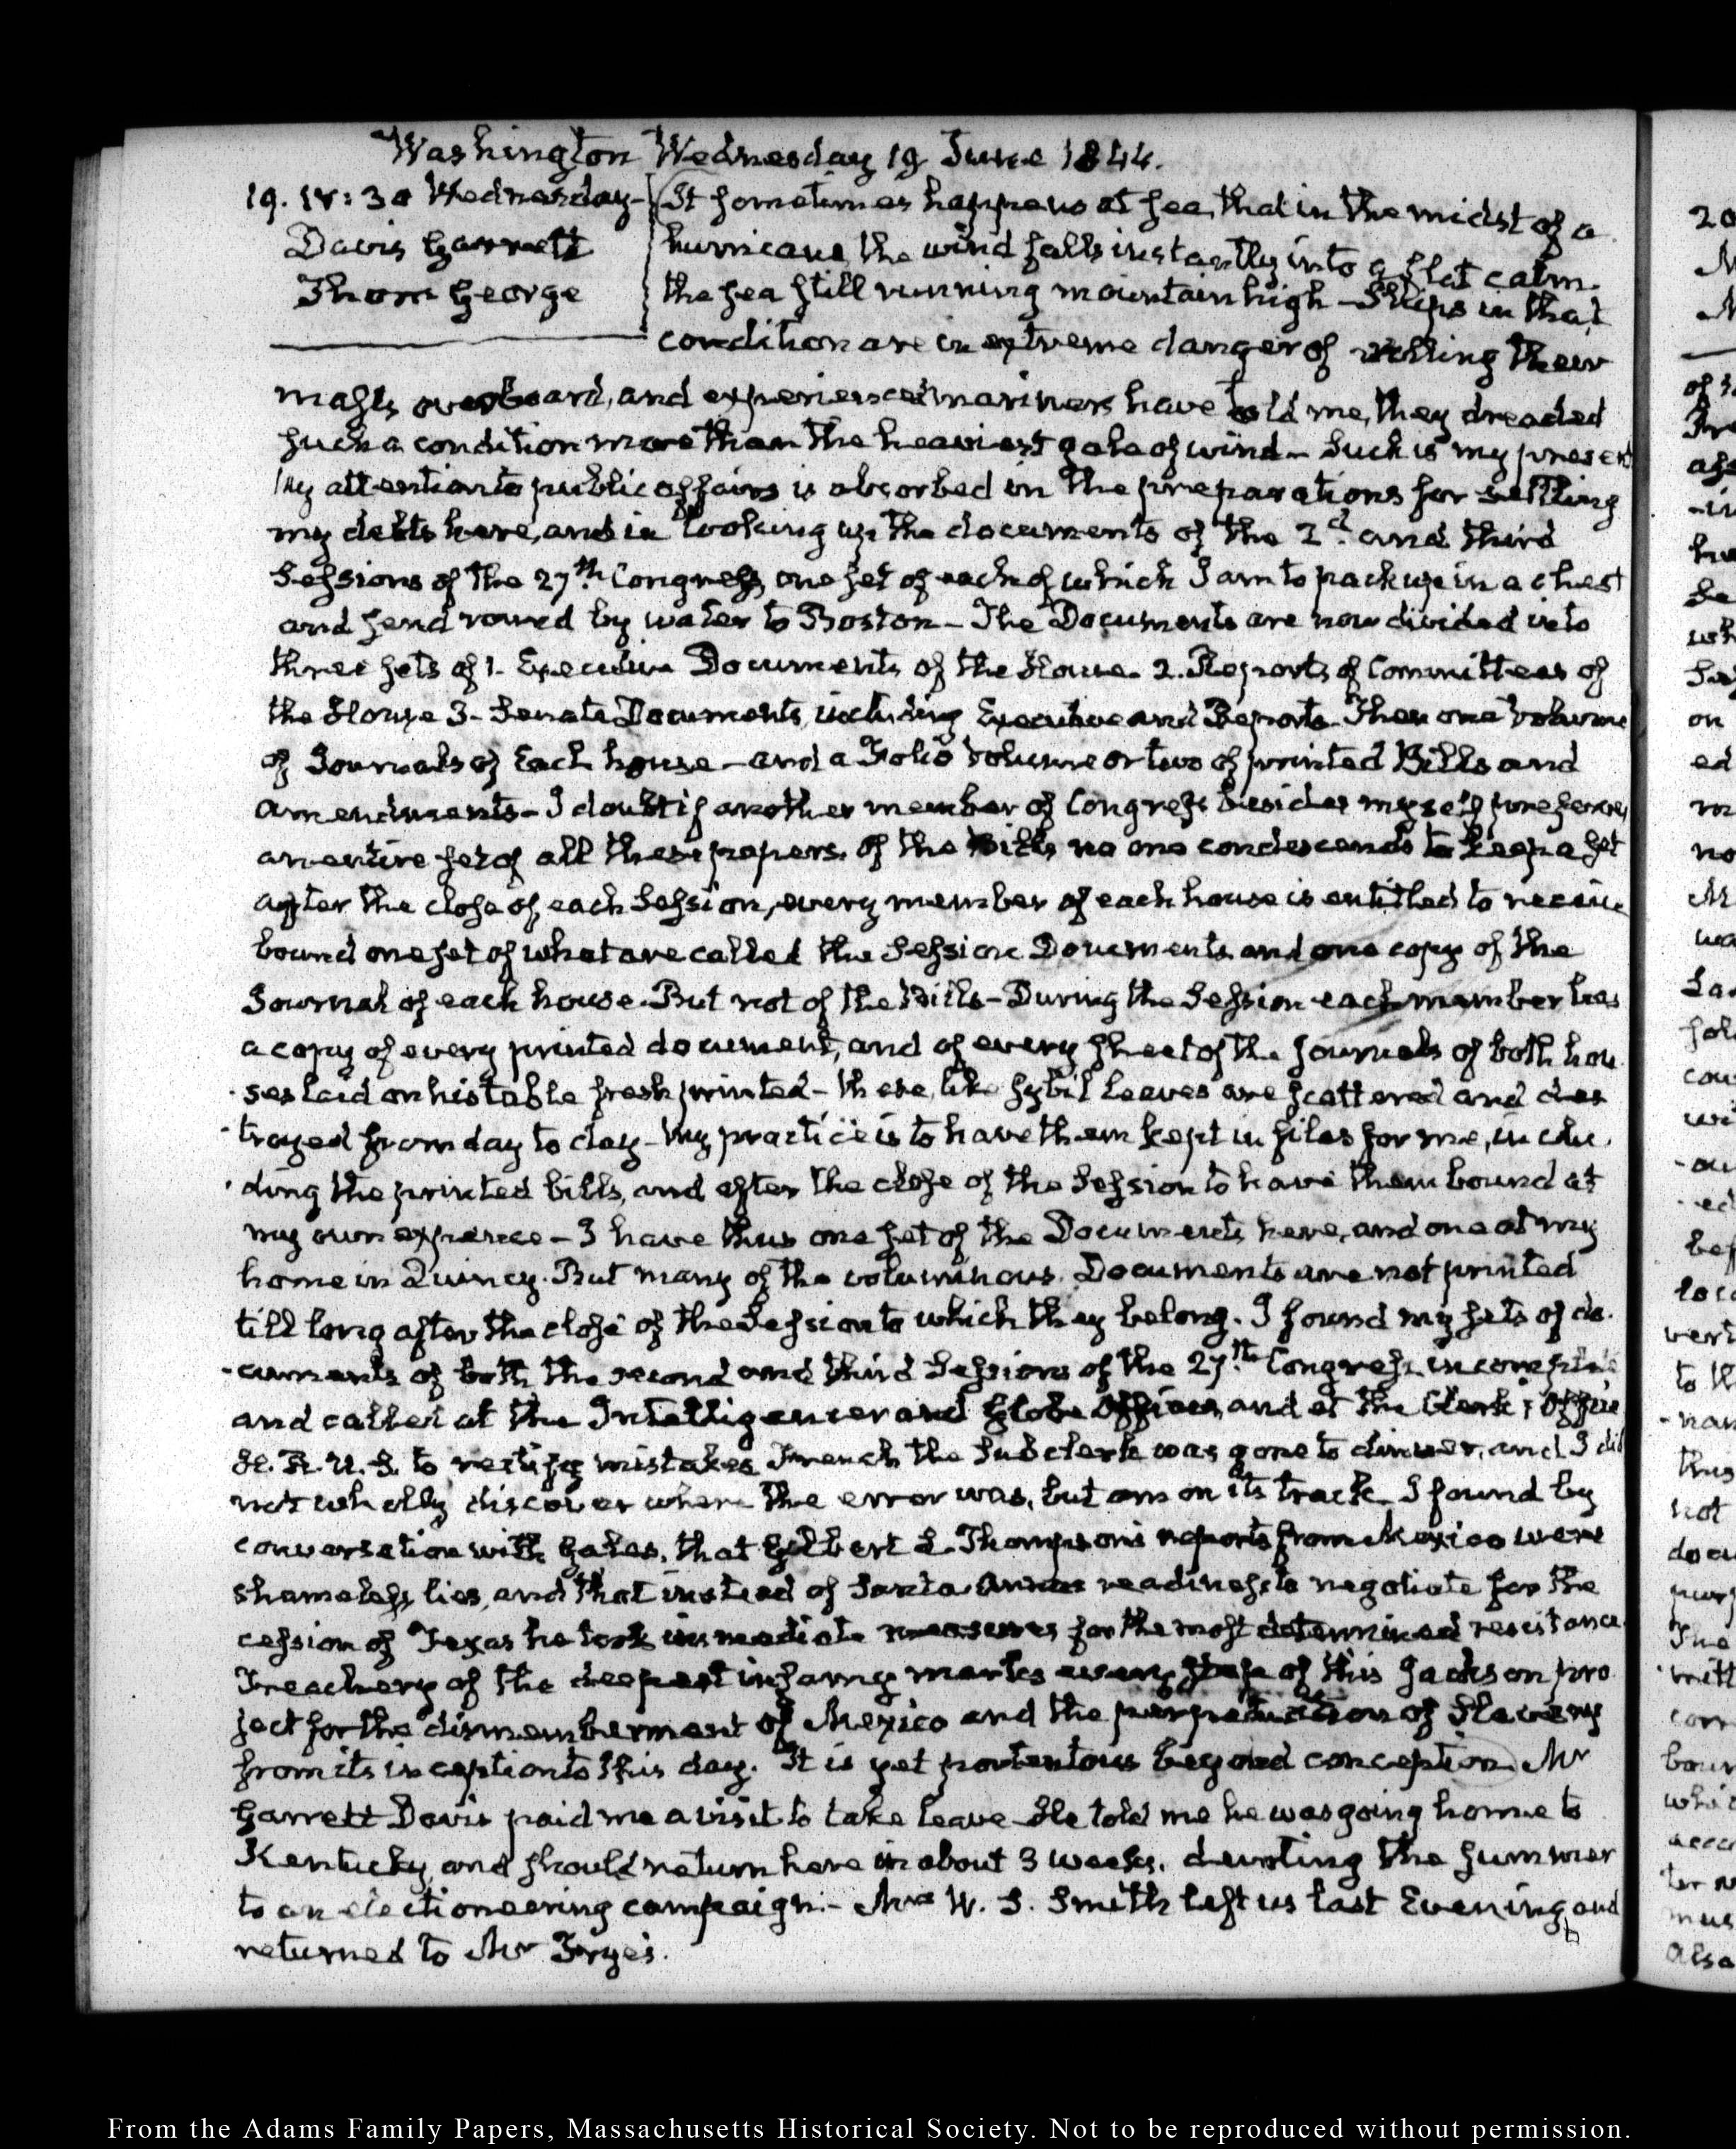 Washington Wednesday 19 June 1844.
19. IV:30 Wednesday-
Davis Garrett
Thom George
It sometimes happens at sea, that in the midst of a
hurricane, the wind falls instantly into a flat calm.
the sea still running mountain high - Ships in that
condition are in extreme danger of rolling their
masts overboard, and experienced mariners have told me, they dreaded
such a condition more than the heaviest gale of wind - Such is my present
My attention to public affairs is absorbed in the preparations for settling
my debts here, and in looking up the documents of the 2d. and third
Sessions of the 27th. Congress, one set of each of which I am to pack up in a chest
and send round by water to Boston - The Documents are now divided into
three sets of 1. Executive Documents of the House. 2. Reports of Committees of
the House 3. Senate Documents, including Executive and Reports. Then one volume
of Journals of Each house - and a Folio volume or two of printed Bills and
amendments - I doubt if another member of Congress besides myself preserves
an entire set of all these papers. Of the Bills no one condescends to keep a set
after the close of each Session, every member of each house is entitled to receive
bound one set of what are called the Session Documents and one copy of the
Journal of each house. But not of the Bills - During the Session each member has
a copy of every printed document, and of every sheet of the journals of both hou
-ses laid on his table fresh printed - these, like sybil leaves are scattered and des
-troyed from day to day - My practice is to have them kept in files for me, inclu
-ding the printed bills, and after the close of the Session to have them bound at
my own expence - I have thus one set of the Documents here, and one at my
home in Quincy. But many of the voluminous Documents are not printed
till long after the close of the Session to which they belong. I found my sets of do
-cuments of both the second and third Sessions of the 27th. Congress, incomplete
and called at the Intelligencer and Globe Offices, and at the Clerk's Office
H. R. U. S. to rectify mistakes French the Subclerk was gone to dinner, and I did
not wholly discover where the error was, but am on its track. I found by
conversation with Gales, that Gilbert L. Thompson's reports from Mexico were
shameless lies, and that instead of Santa Annas readiness to negotiate for the
cession of Texas he took immediate measures for the most determined resistance.
Treachery of the deepest infamy marks every step of this Jackson pro
ject for the dismemberment of Mexico and the perpetuation of Slavery
from its inception to this day. It is yet portentous beyond conception Mr
Garrett Davis paid me a visit to take leave - He told me he was going home to
Kentucky, and should return here in about 3 weeks, devoting the summer
to an electioneering campaign. - Mrs W. S. Smith left us last Evening and
returned to Mr Frye's.
20
From the Adams Family Papers, Massachusetts Historical Society. Not to be reproduced without permission.